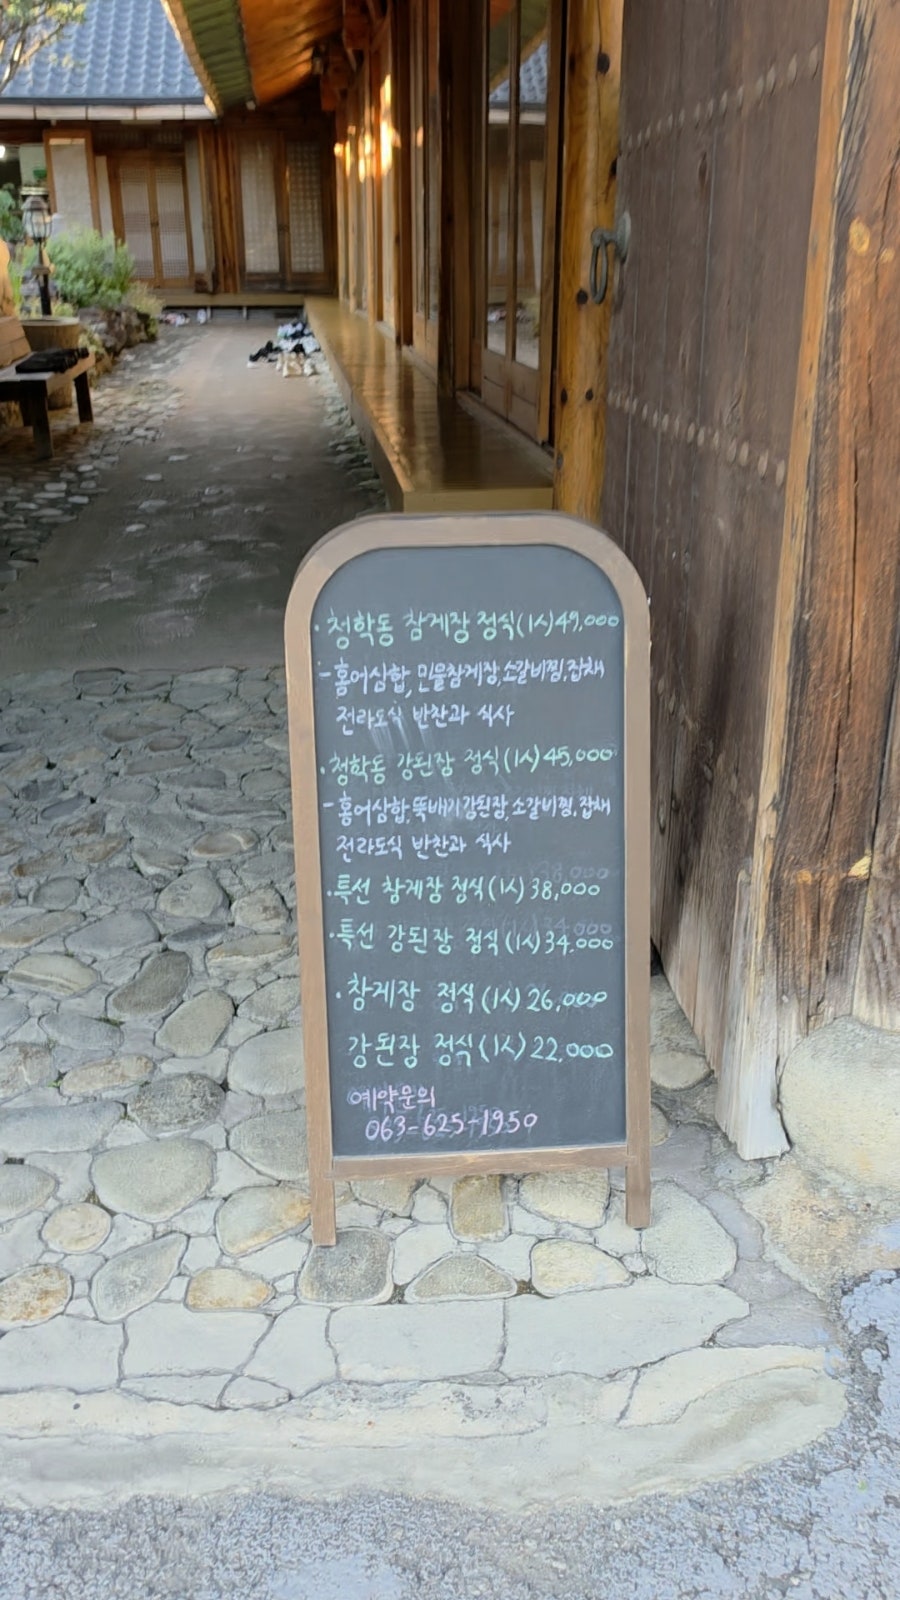 · 청학동 참게장 정식(1人)49,000
- 홍어삼합, 민물참게장, 소갈비찜, 잡채
전라도식 반찬과 식사
· 청학동 강된장 정식(1人)45,000
- 홍어삼합, 뚝배기강된장, 소갈비찜, 잡채
전라도식 반찬과 식사
· 특선 참게장 정식(1人)38,000
· 특선 강된장 정식(1人)34,000
· 참게장 정식(1人)26,000
강된장 정식(1人)22,000
예약문의
063-625-1950